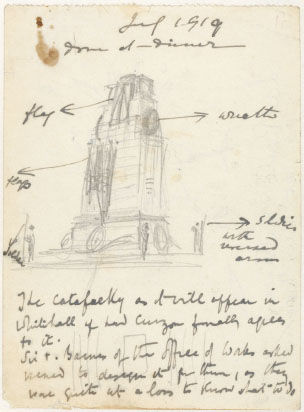 July 1919
Done at dinner
flag
wreath
flags
Soldier
Soldier
with
reversed
arms
The catafalque as it will appear in
Whitehall if Lord Curzon finally agrees
to it.
Sir F. Baines of the Office of Works asked
to design it for them, as they
were quite at a loss to know what to do